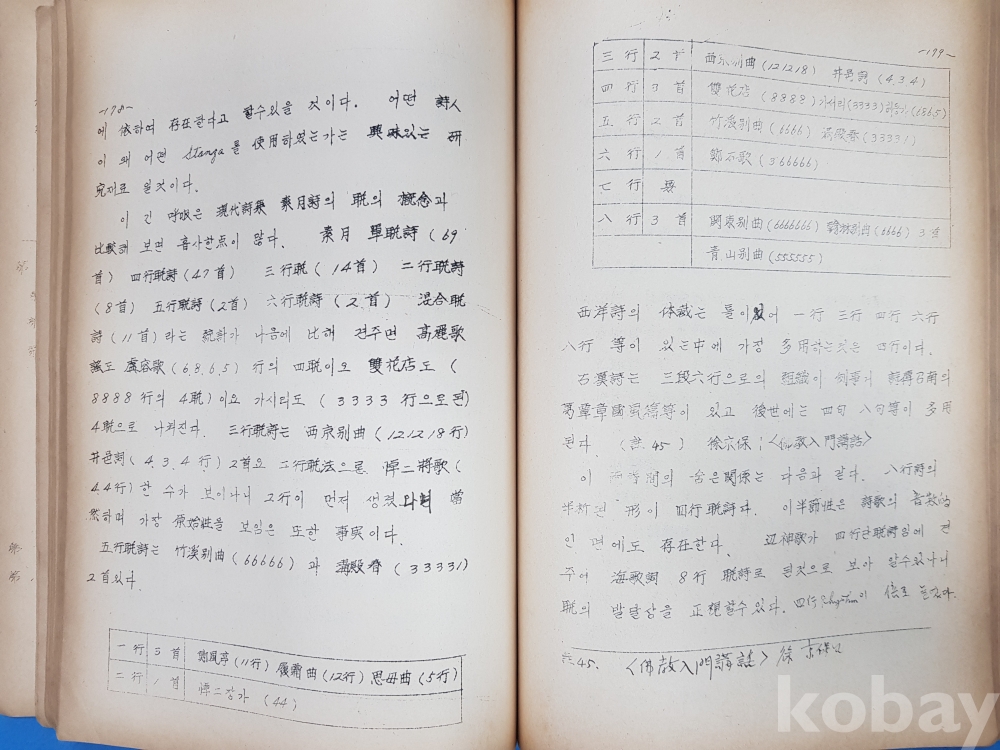 -178-
에 依하여 存在한다고 할수있을 것이다. 어떤 詩人
이 왜 어떤 Stanza를 使用하였는가는 興味있는 研
究재료 될것이다.
이 긴 呼吸은 現代詩聚 素月詩의 聯의 槪念과
比較해 보면 흡사한点이 많다. 素月 單聯詩 (69
首) 四行聯詩 (47首) 三行聯 (14首) 二行聯詩
(8首) 五行聯詩 (2首) 六行聯詩 (2首) 混合聯
詩 (11首) 라는 統計가 나옴에 比해 견주면 高麗歌
謠도 處容歌 (6.8.6.5) 行의 四聯이오 雙花店도 (
8888 行의 4聯) 이오 가시리도 (3333 行으로된)
4聯으로 나켜진다. 三行聯詩는 西京别曲 (12 12 18 行)
井邑詞 (4.3.4 行) 2首요 二行聯法으로 悼二將歌 (
4.4行) 한 수가 보이나니 2行이 먼저 생겼 當
然하며 가장 原始性을 보임은 또한 事実이다.
五行聯詩는 竹溪别曲 (66666) 과 滿殿春 (33331)
2首있다.
一行 3首 鄭風亭 (11行) 履霜曲 (12行) 思母曲 (5行)
二行 1首 悼二장가 (44)
-199-
三行 2수 西京别曲 (12 12 18) 井邑詞 (4.3.4)
四行 3首 雙花店 (8888) 가시리 (3333) 처용가 (6865)
五行 2首 竹溪别曲 (6666) 滿殿春 (33331)
六行 1首 鄭石歌 (3.66666)
七行 無
八行 3首 関東别曲 (6666666) 翰林别曲 (6666) 3首
青山别曲 (555555)
西洋詩의 体裁는 들이 어 一行 三行 四行 六行
八行 等이 있는中에 가장 多用하는것은 四行이다.
古漢詩는 三段六行으로의 組織이 例事가 詩傳召南의
葛覃章國風 等이 있고 後世에는 四句 八句等이 多用
된다 (註. 45) 徐京保 ; <仏敎入門講話>
이 間의 숨은関係는 다음과 같다. 八行詩의
半折된 形이 四行聯詩다. 이半節性은 詩歌의 音数的
인 面에도 存在한다. 辺神歌가 四行 聯詩임에 견
주어 海歌詞 8行 聯詩로 된것으로 보아 알수있나니
聯의 발달상을 正視할수있다. 四行 Rhythm이 倍로
註45. <佛敎入門講話> 徐 京保
kobay